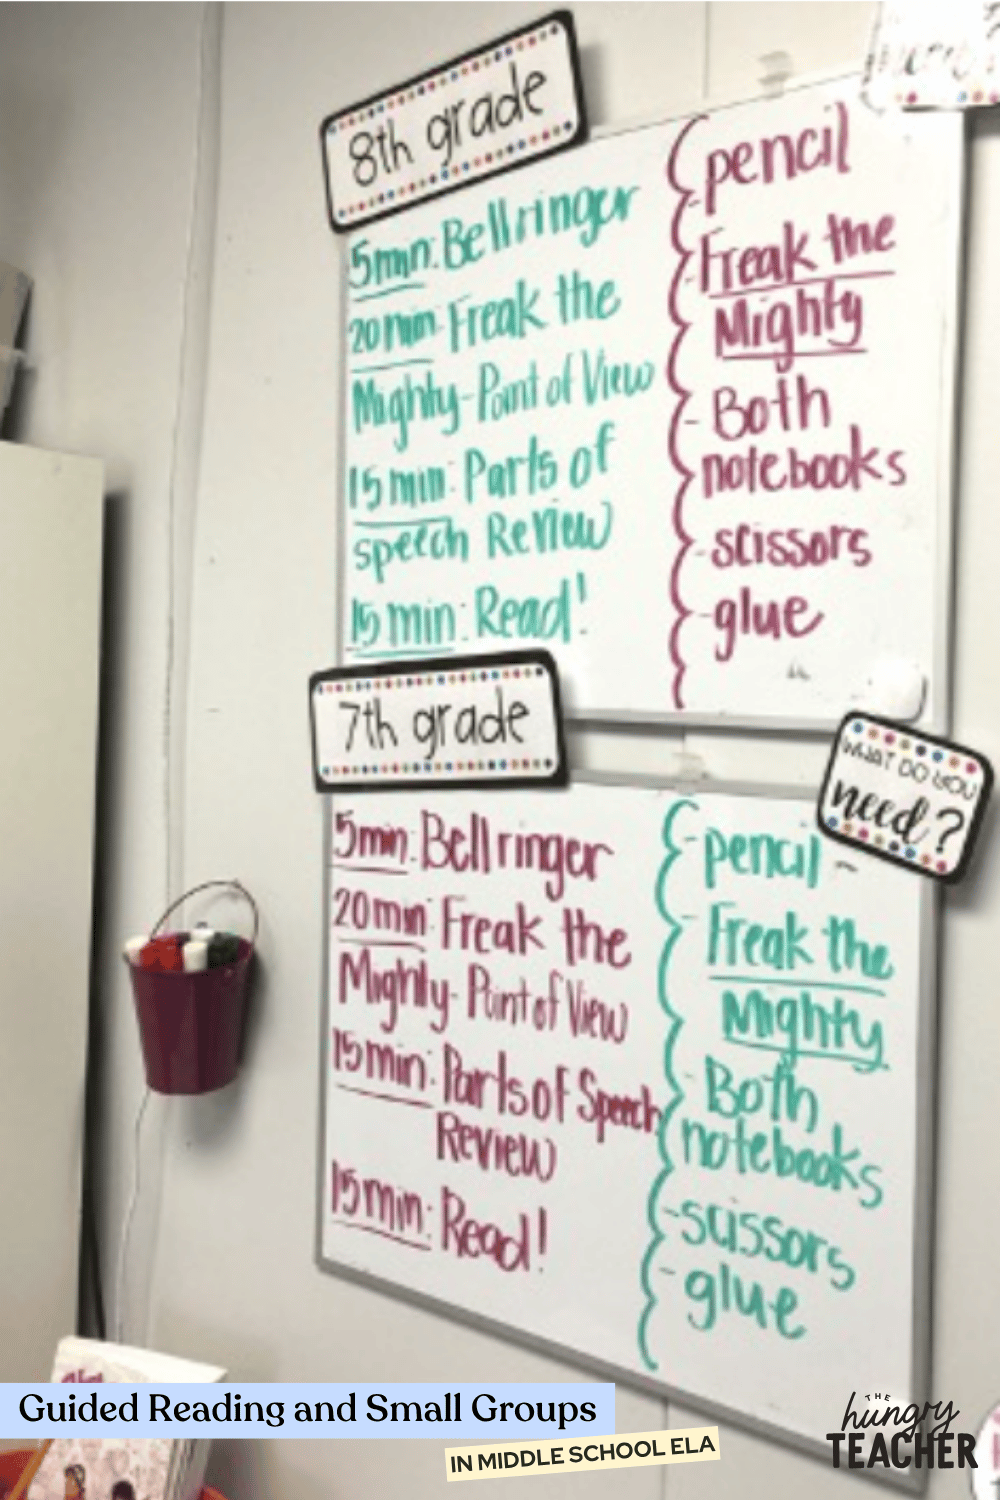 8th grade
5min: Bellringer
20min: Freak the
Mighty - Point of View
15 min: Parts of
speech Review
15 min: Read!
pencil
- Freak the
Mighty
- Both
notebooks
- scissors
- glue
7th grade
5min: Bellringer
20min: Freak the
Mighty - Point of View
15min: Parts of Speech
Review
15min: Read!
WHAT DO YOU
need?
- pencil -
- Freak the
Mighty
- Both
notebooks
- scissors
- glue
Guided Reading and Small Groups
IN MIDDLE SCHOOL ELA
THE
hungry
TEACHER